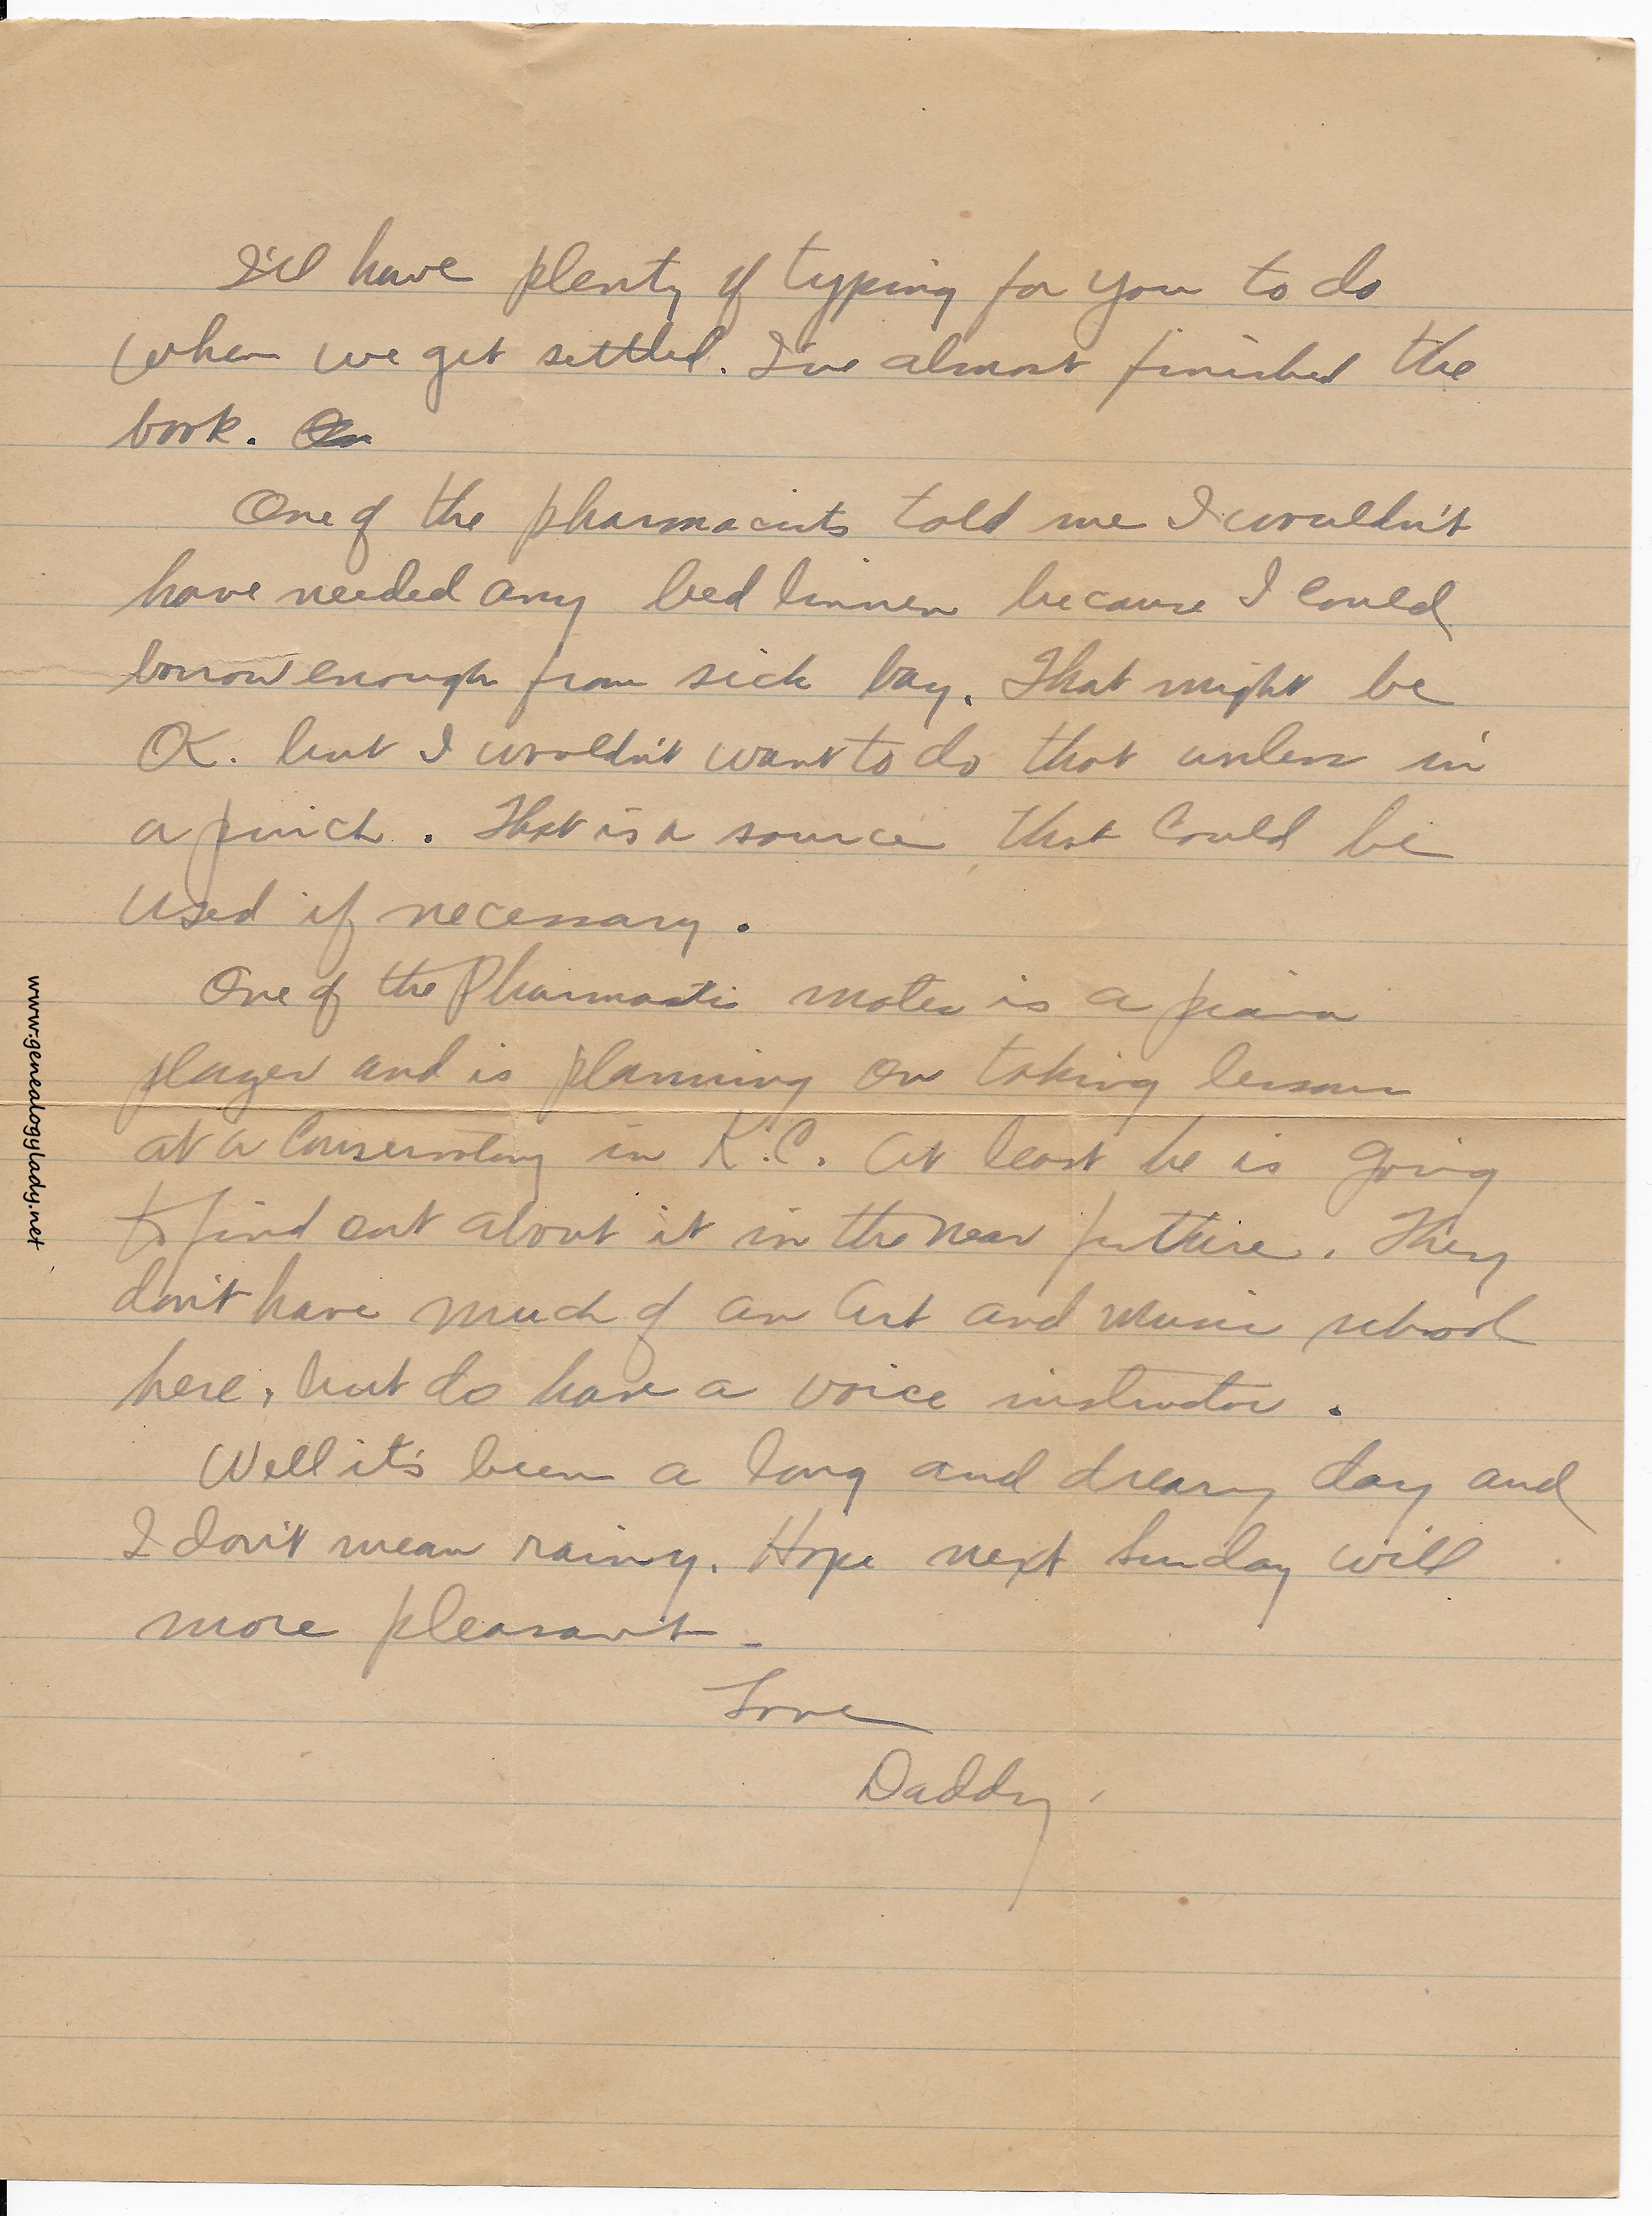 I'll have plenty of typing for you to do
when we get settled. I've almost finished the
book. On
One of the pharmacists told me I wouldn't
have needed any bed linnen because I could
borrow enough from sick bay. That might be
OK. but I wouldn't want to do that unless in
a pinch. That is a source that could be
used if necessary.
One of the Pharmacists mates is a piano
player and is planning on taking lessons
at a Conservatory in K.C. At least he is going
to find out about it in the near future. They
don't have much of an Art and Music school
here, but do have a voice instructor.
Well it's been a long and dreary day and
I don't mean rainy. Hope next Sunday will
more pleasant.
Love
Daddy
www.genealogylady.net